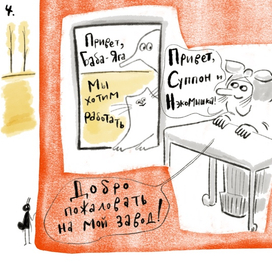 4.
Привет,
Баба-Яга
Мы
хотим
работать
Привет,
Суппон и
Нэкомышка!
Добро
пожаловать
на мой завод!